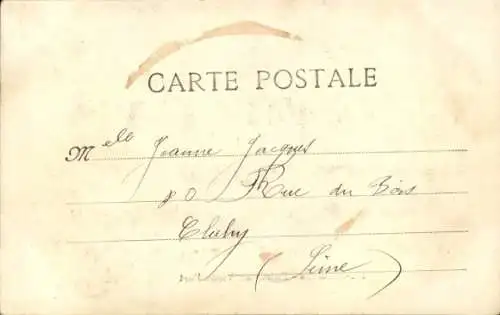 CARTE POSTALE
Melle Jeanne Jacques
Rue du Bois
Clichy
(Seine)